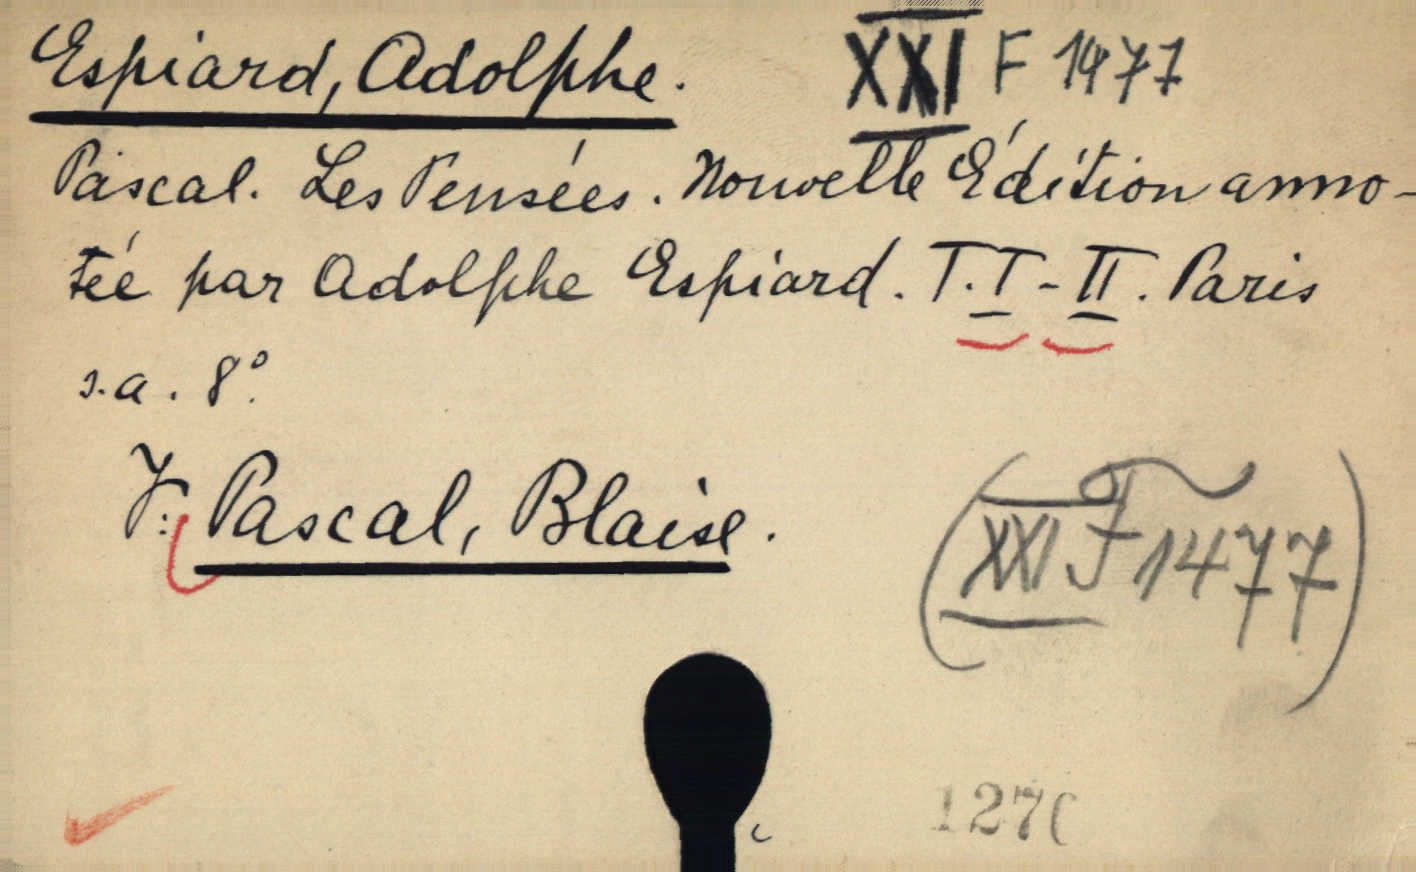 Espiard, Adolphe. XXI F 1477
Pascal. Les Pensées. Nouvelle Édition anno-
tée par Adolphe Espiard. T. I - II. Paris
s. a. 8°.
V: Pascal, Blaise.
(XXI F 1477)